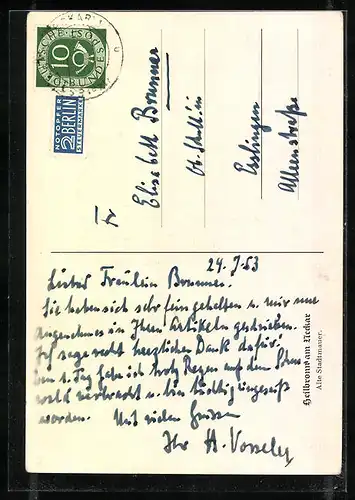 10
DEUTSCHE BUNDESPOST
NOTOPFER
2 BERLIN
STEUERMARKE
Fr
Elisabeth Brunner
Esslingen
Alleenstraße
24. 7. 53
Liebes Fräulein Brunner.
Sie haben sich sehr fein gehalten u. mir nur
Angenehmes in Ihren Artikeln geschrieben.
Ich sage recht herzlichen Dank dafür.
Den Tag habe ich trotz Regen auf dem
verbracht u. bin tüchtig
worden. Mit vielen Grüßen
Ihr H.
Heilbronn am Neckar
Alte Stadtmauer.